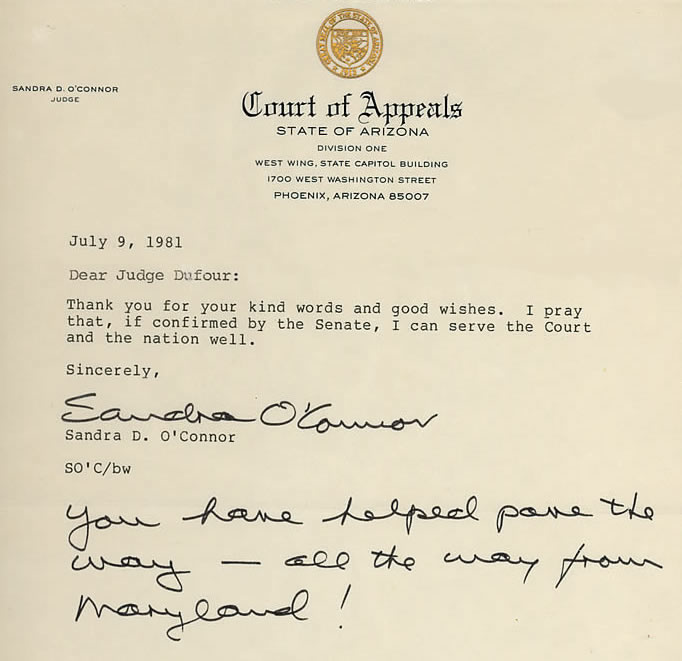 GREAT SEAL OF THE STATE OF ARIZONA
1912
SANDRA D. O'CONNOR
JUDGE
Court of Appeals
STATE OF ARIZONA
DIVISION ONE
WEST WING, STATE CAPITOL BUILDING
1700 WEST WASHINGTON STREET
PHOENIX, ARIZONA 85007
July 9, 1981
Dear Judge Dufour:
Thank you for your kind words and good wishes. I pray
that, if confirmed by the Senate, I can serve the Court
and the nation well.
Sincerely,
Sandra O'Connor
Sandra D. O'Connor
SO'C/bw
You have helped pave the
way — all the way from
Maryland!